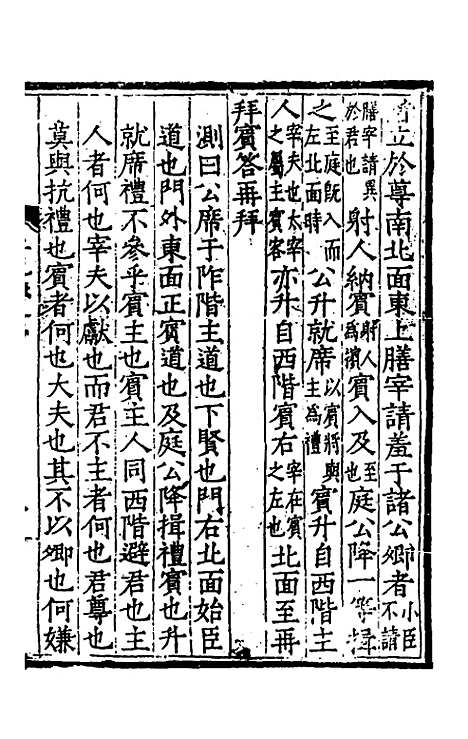 立於尊南北面東上膳宰請羞于諸公卿者小臣不請
膳宰請異於君也射人納賓射人為擯賓入及至也庭公降一等揖
之至庭旣入而左北面時公升就席以賓將與主為禮賓升自西階主
人宰夫也太宰之屬主賓客亦升自西階賓右宰在賓之左也北面至再
拜賓答再拜
測曰公席于阼階主道也下賢也門右北面始臣
道也門外東面正賓道也及庭公降揖禮賓也升
就席禮不參乎賓主也賓主人同西階避君也主
人者何也宰夫以獻也而君不主者何也君尊也
莫與抗禮也賓者何也大夫也其不以卿也何嫌